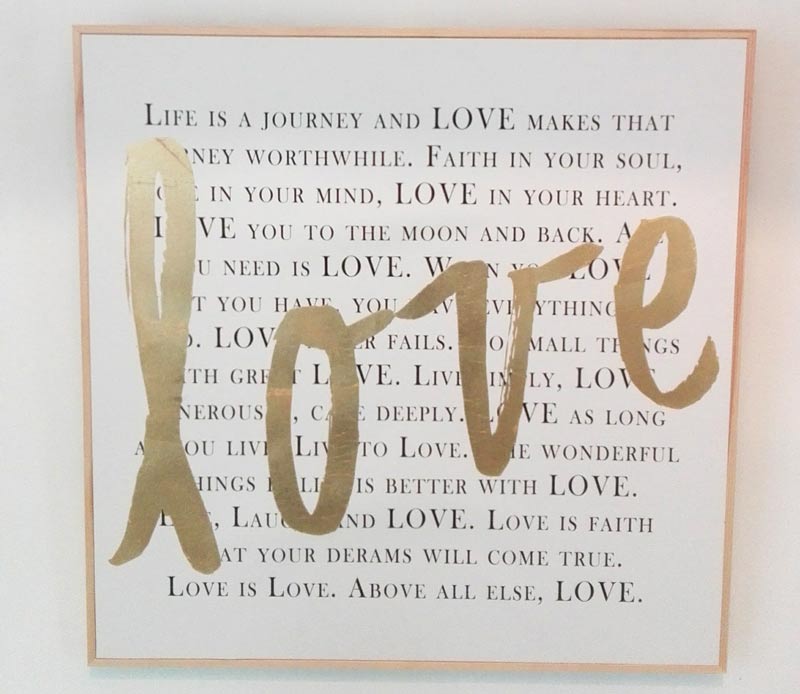 LIFE IS A JOURNEY AND LOVE MAKES THAT
WORTHWHILE. FAITH IN YOUR SOUL,
IN YOUR MIND, LOVE IN YOUR HEART.
LOVE YOU TO THE MOON AND BACK.
NEED IS LOVE. WHEN YOU LOVE
YOU HAVE, YOU HAVE EVERYTHING
LOVE FAILS. DO SMALL THINGS
WITH GREAT LOVE. LIVE SIMPLY, LOVE
GENEROUSLY, CARE DEEPLY. LOVE AS LONG
AS YOU LIVE. LIVE TO LOVE. THE WONDERFUL
THINGS IS BETTER WITH LOVE.
LAUGH AND LOVE. LOVE IS FAITH
THAT YOUR DERAMS WILL COME TRUE.
LOVE IS LOVE. ABOVE ALL ELSE, LOVE.
love